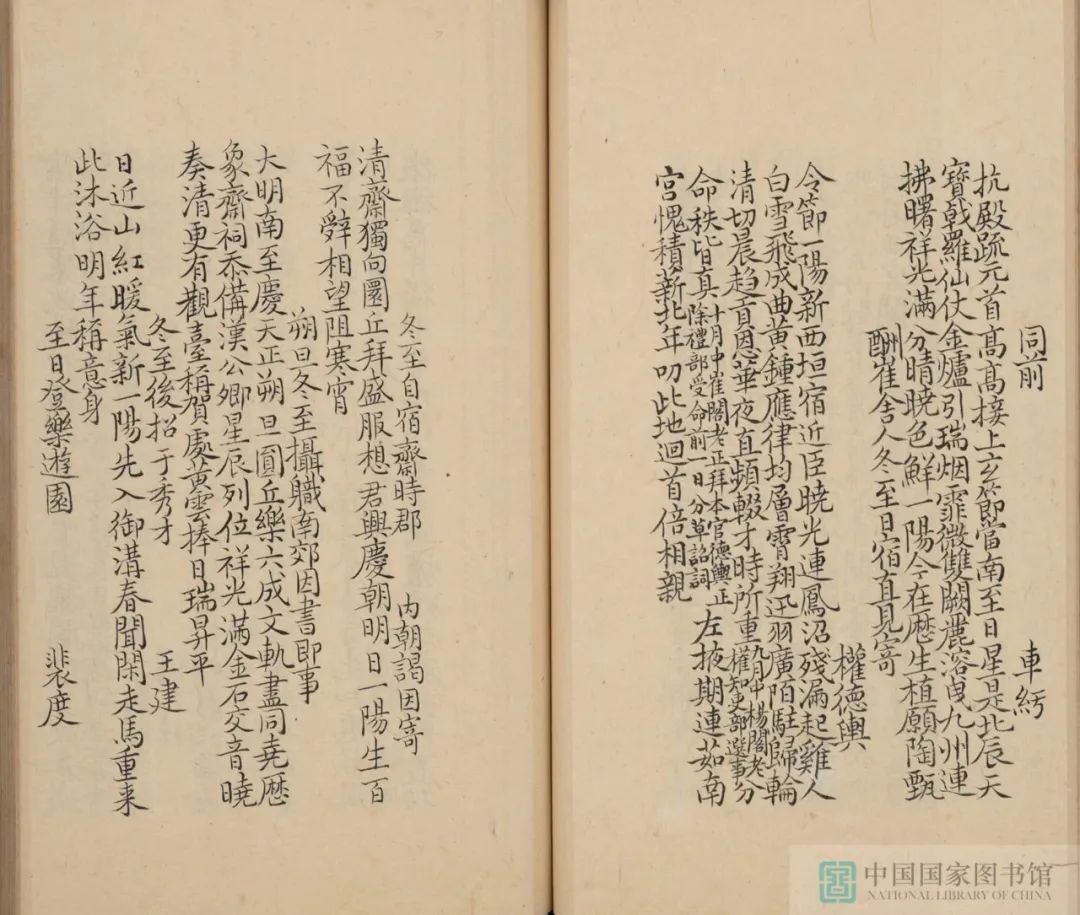 同前 車紓
抗殿疏元首髙髙接上玄節當南至日星是北辰天
寶戟羅仙仗金爐引瑞烟霏微雙闕麗溶曳九州連
拂曙祥光滿分晴曉色鮮一陽今在厯生植願陶甄
酬崔舍人冬至日宿直見寄
權德輿
令節一陽新西垣宿近臣曉光連鳳沼殘漏起雞人
白雪飛成曲黄鍾應律均層霄翔迅羽廣陌駐歸輪
清切晨趍貢恩華夜直頻輟才時所重九月中楊閣老分
權知吏部選事分
命秩皆真十月中崔閣老正拜本官德輿正
除禮部受命前一日分草詔詞左掖期連茹南
宫愧積薪北年叨此地迴首倍相親
冬至自宿齋時郡 内朝謁因寄
清齋獨向圜丘拜盛服想君興慶朝明日一陽生百
福不辤相望阻寒宵
朔旦冬至攝職南郊因書即事
大明南至慶天正朔旦圓丘樂六成文軌盡同堯厯
象齋祠忝備漢公卿星辰列位祥光滿金石交音曉
奏清更有觀臺稱賀處黄雲捧日瑞昇平
冬至後招于秀才 王建
日近山紅暖氣新一陽先入御溝春聞閑走馬重来
此沐浴明年稱意身
至日登樂遊園 裴度
中国国家图书馆
NATIONAL LIBRARY OF CHINA